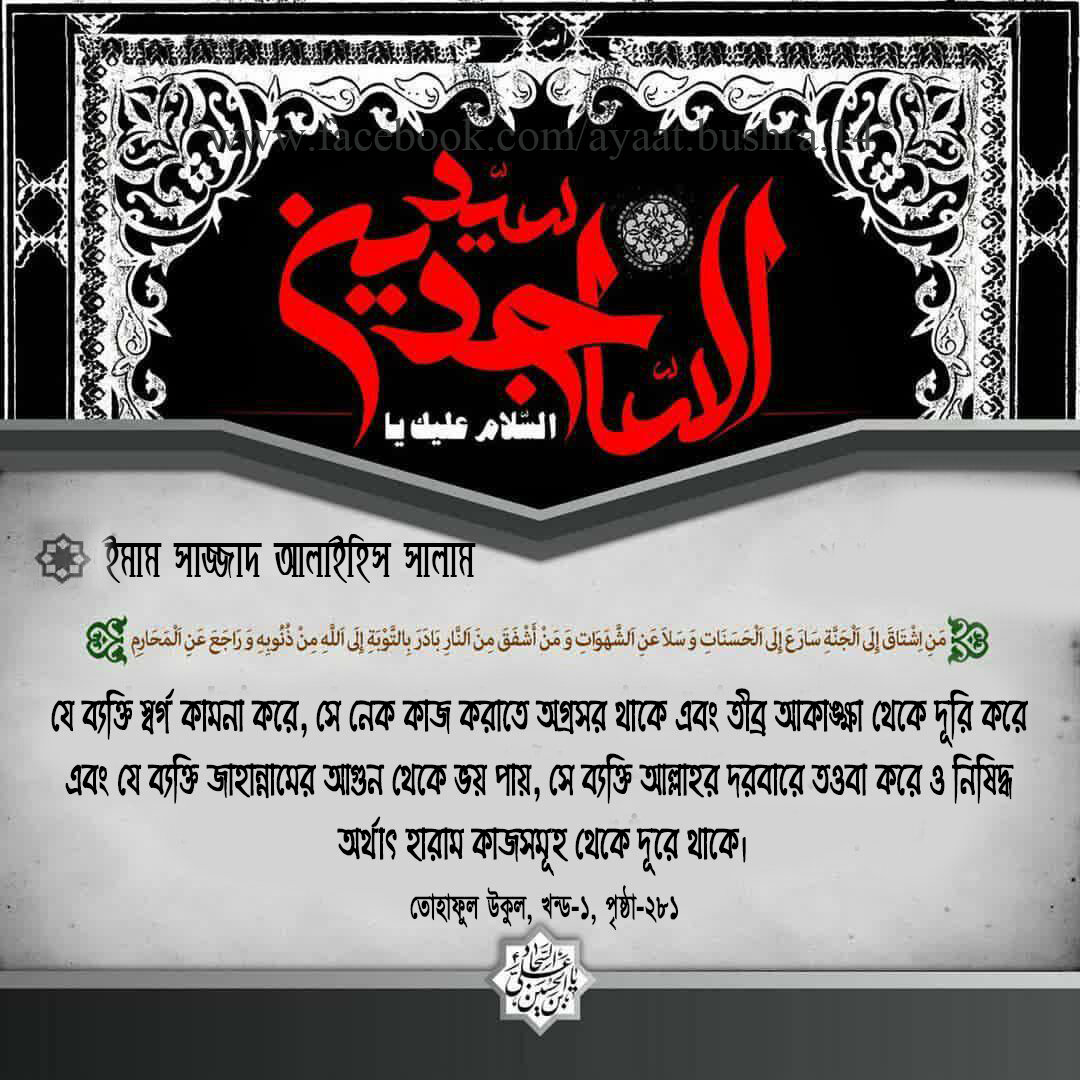 www.facebook.com/ayaat.bushra.14
سيد الساجدين
السَّلام عليك يا
ইমাম সাজ্জাদ আলাইহিস সালাম
مَنِ اِشْتَاقَ إِلَى اَلْجَنَّةِ سَارَعَ إِلَى اَلْحَسَنَاتِ وَ سَلاَ عَنِ اَلشَّهَوَاتِ وَ مَنْ أَشْفَقَ مِنَ اَلنَّارِ بَادَرَ بِالتَّوْبَةِ إِلَى اَللَّهِ مِنْ ذُنُوبِهِ وَ رَاجَعَ عَنِ اَلْمَحَارِمِ
যে ব্যক্তি স্বর্গ কামনা করে, সে নেক কাজ করাতে অগ্রসর থাকে এবং তীব্র আকাঙ্ক্ষা থেকে দূরি করে
এবং যে ব্যক্তি জাহান্নামের আগুন থেকে ভয় পায়, সে ব্যক্তি আল্লাহর দরবারে তওবা করে ও নিষিদ্ধ
অর্থাৎ হারাম কাজসমূহ থেকে দূরে থাকে।
তোহাফুল উকুল, খন্ড-১, পৃষ্ঠা-২৮১